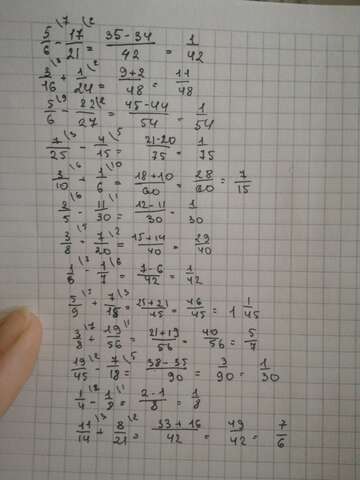 5/6 \7 - 17/21 \2 = 35-34/42 = 1/42
3/16 \3 + 1/24 \2 = 9+2/48 = 11/48
5/6 \9 - 22/27 \2 = 45-44/54 = 1/54
7/25 \3 - 4/15 \5 = 21-20/75 = 1/75
3/10 \6 + 1/6 \10 = 18+10/60 = 28/60 = 7/15
2/5 \6 - 11/30 \1 = 12-11/30 = 1/30
3/8 \5 - 7/20 \2 = 15+14/40 = 29/40
1/6 \7 - 1/7 \6 = 7-6/42 = 1/42
5/9 \5 + 7/15 \3 = 25+21/45 = 46/45 = 1 1/45
3/8 \7 + 19/56 \1 = 21+19/56 = 40/56 = 5/7
19/45 \2 - 7/18 \5 = 38-35/90 = 3/90 = 1/30
1/4 \2 - 1/8 \1 = 2-1/8 = 1/8
11/14 \3 + 8/21 \2 = 33+16/42 = 49/42 = 7/6